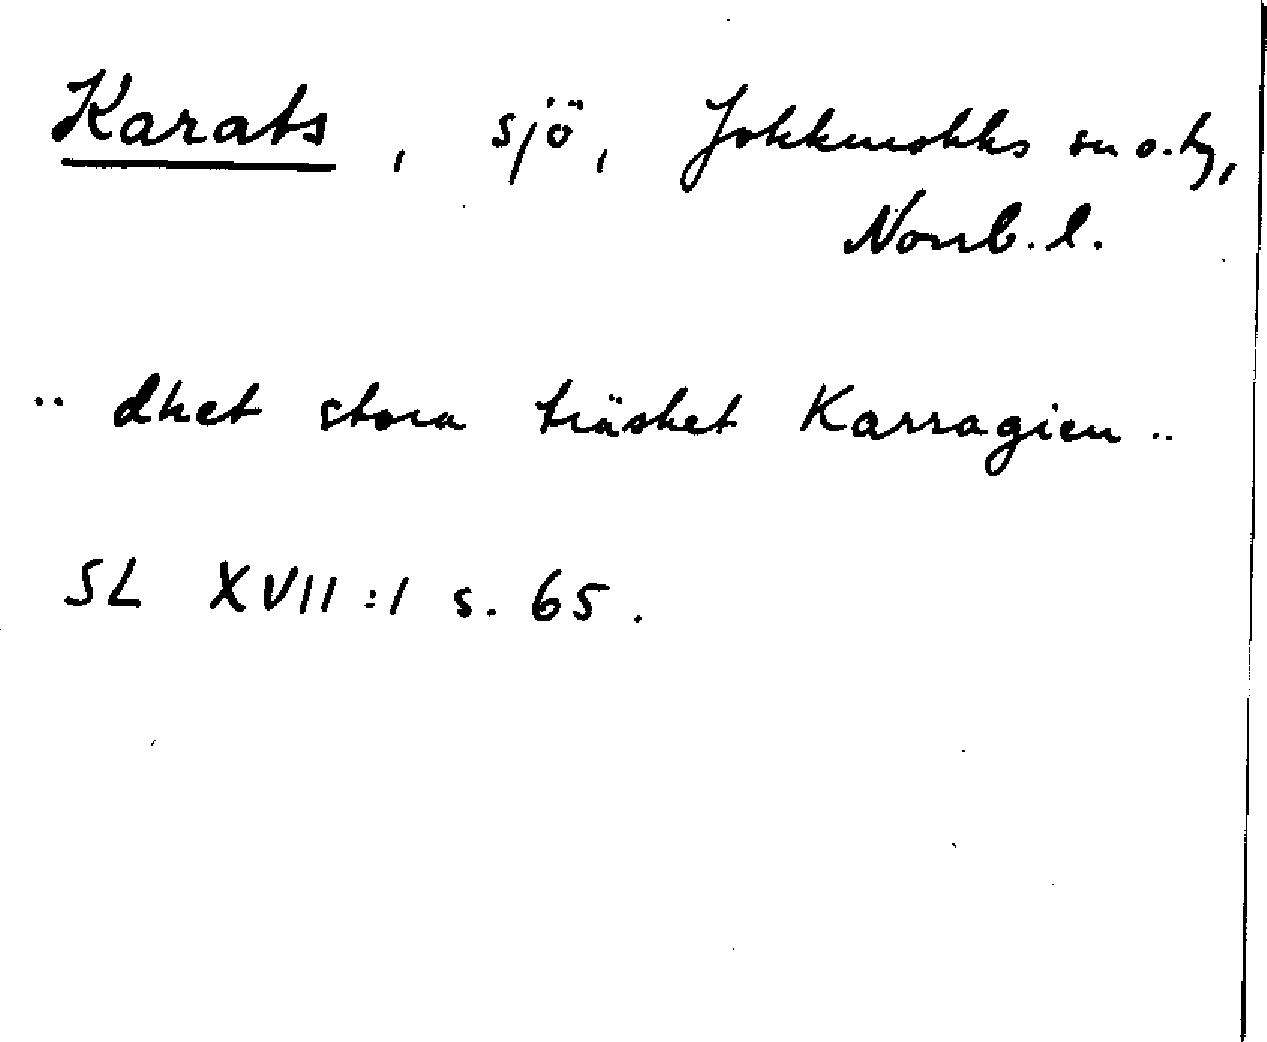 Karats, sjö, Jokkmokks sn o. tg,
Norrb. l.
.. dhet stora träsket Karragien ..
SL XVII:1 s. 65.